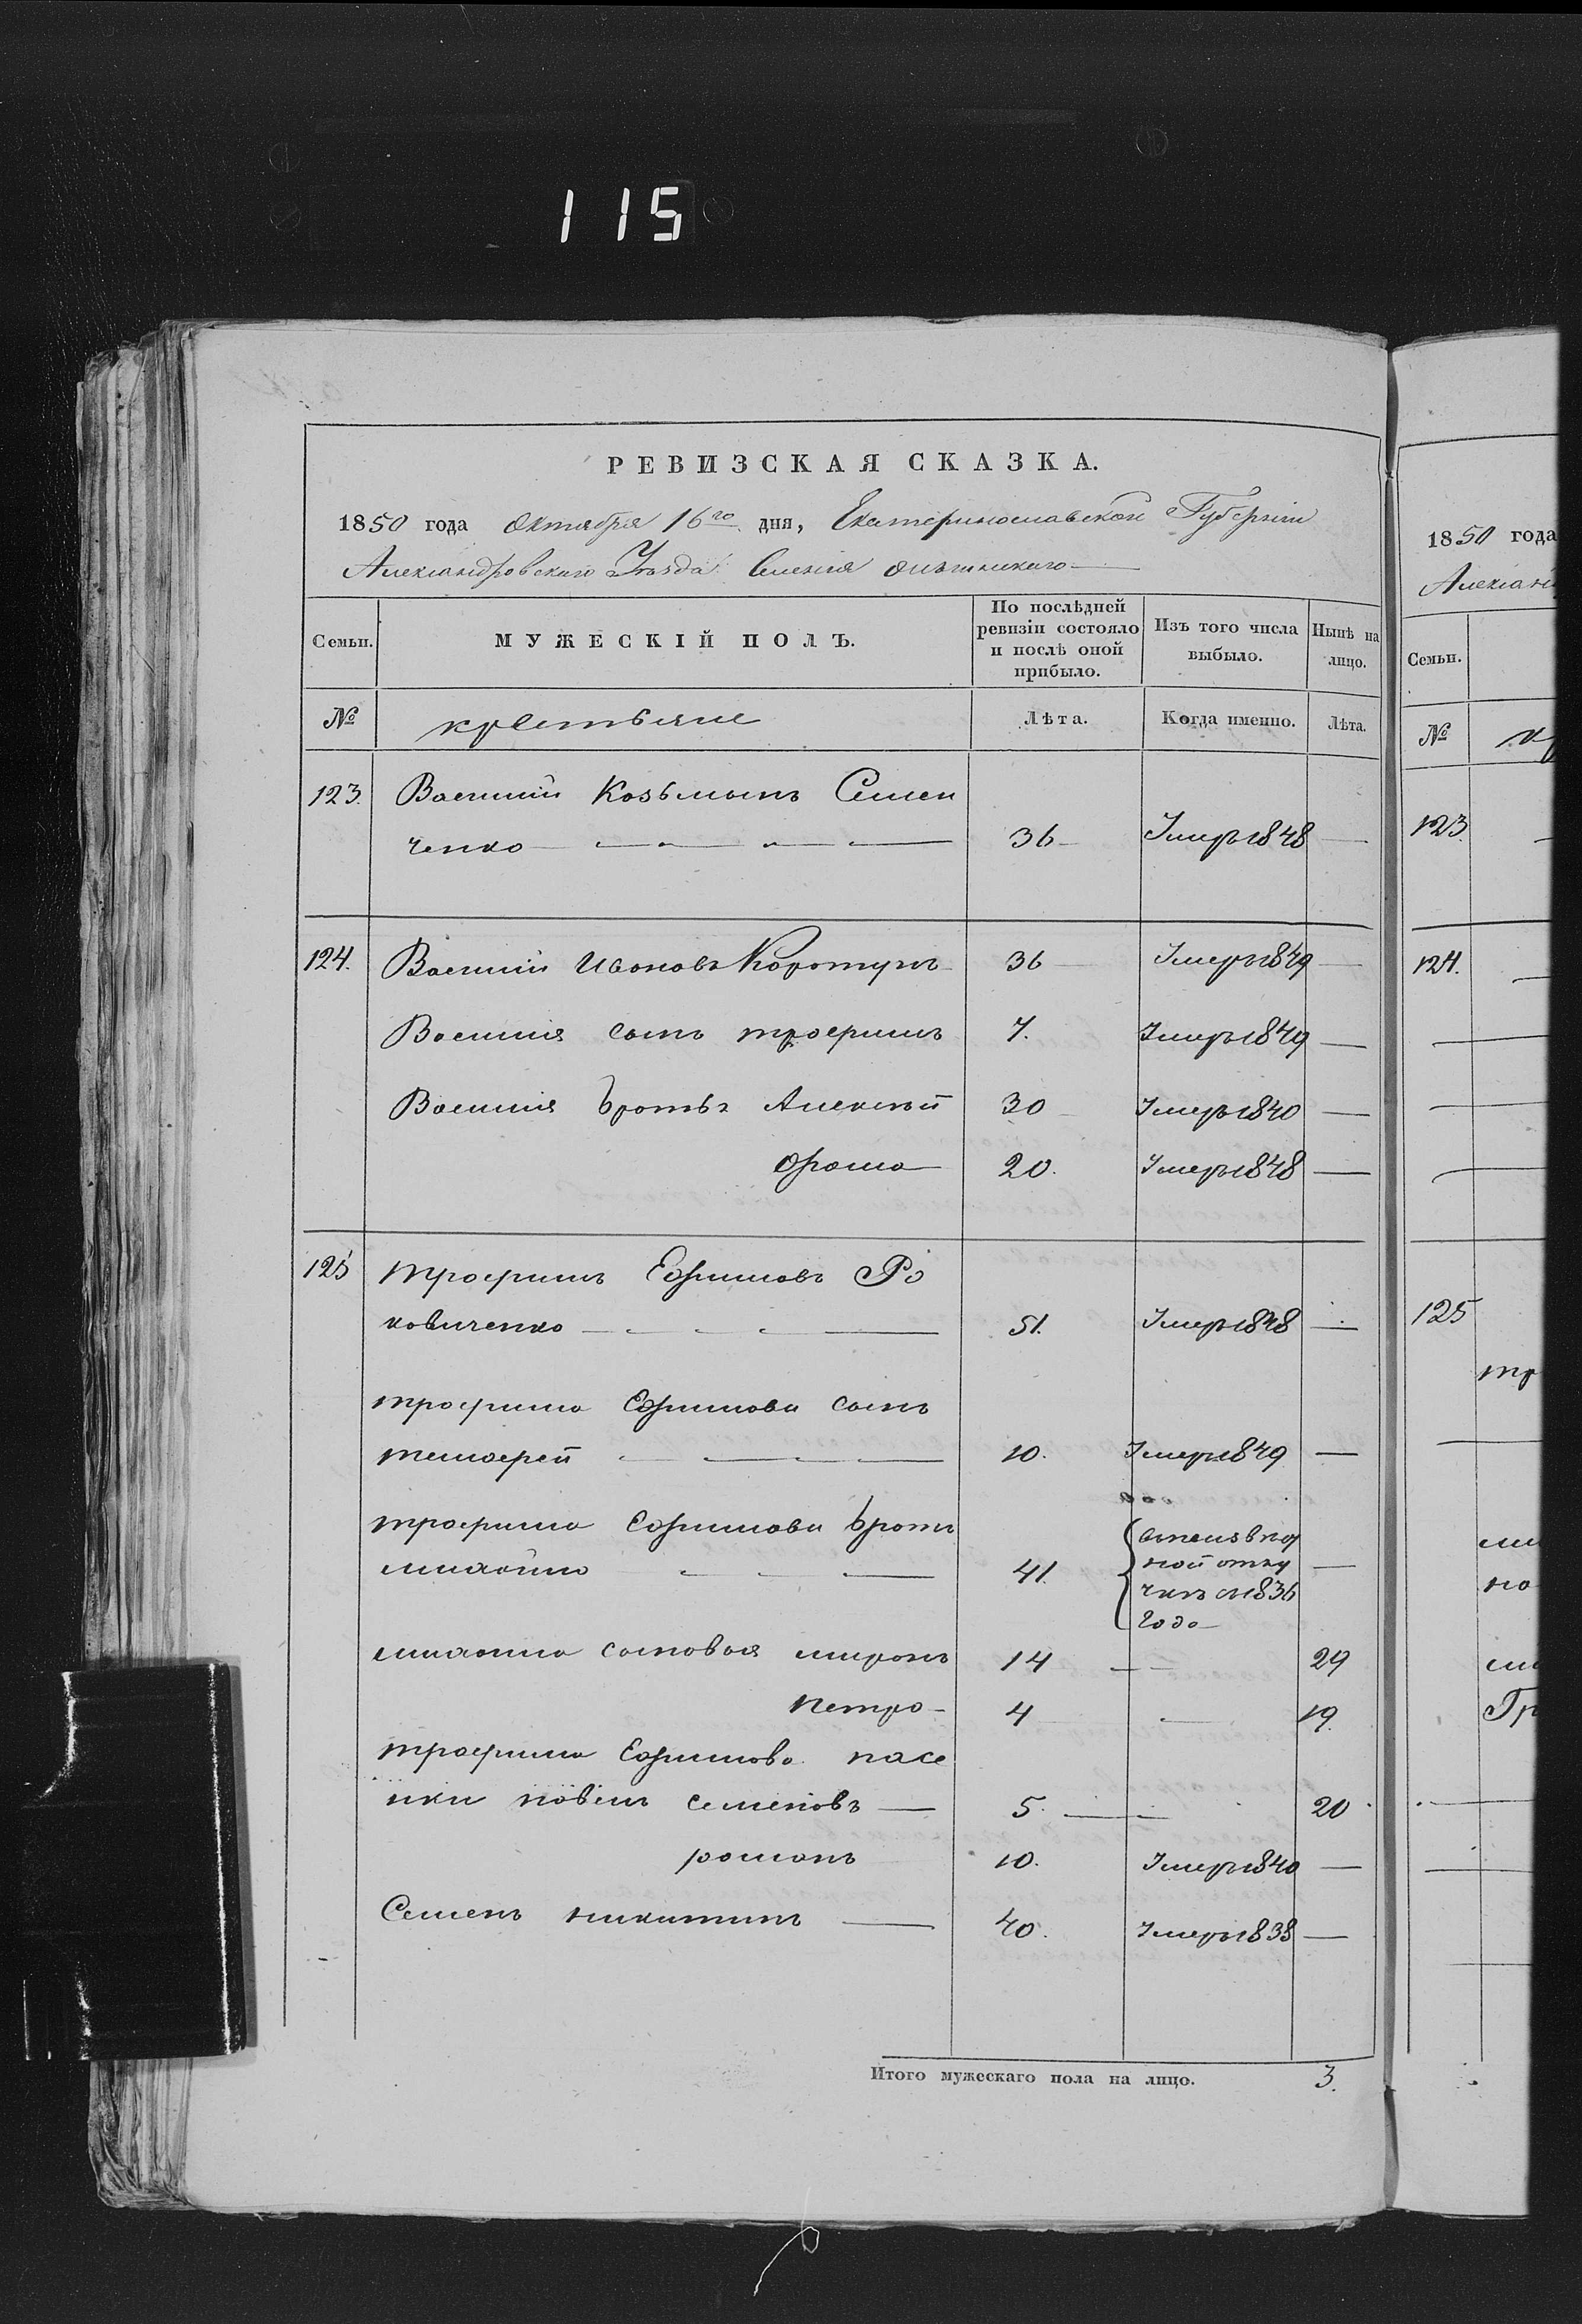 115
РЕВИЗСКАЯ СКАЗКА.
1850 года Октября 16го дня, Екатеринославской Губернии
Александровскаго Уезда Селения
Семьи. МУЖЕСКІЙ ПОЛЪ. По послѣдней ревизіи состояло и послѣ оной прибыло. Изъ того числа выбыло. Нынѣ на лицо.
№ крестьяне Лѣта. Когда именно. Лѣта.
123. Василий Козьминъ Семен
ченко 36 Умеръ 1848
124. Василий Ивановъ Коротунъ 36 Умеръ 1849
Василия сынъ трофимъ 7. Умеръ 1849
Василия братья Алексѣй 30 Умеръ 1840
Фома 20. Умеръ 1848
125 трофимъ Ефимовъ
51. Умеръ 1848
трофима Ефимова сынъ
тимофей 10. Умеръ 1849
трофима Ефимова братъ
михайло 41.
1836
года
михайла сыновья миронъ 14 29
петро 4 19.
трофима Ефимова пасе
нки семеновъ 5. 20
романъ 10. Умеръ 1840
Семенъ никитинъ 40. Умеръ 1838
Итого мужескаго пола на лицо. 3.
1850 года
Семьи.
№
123
124.
125